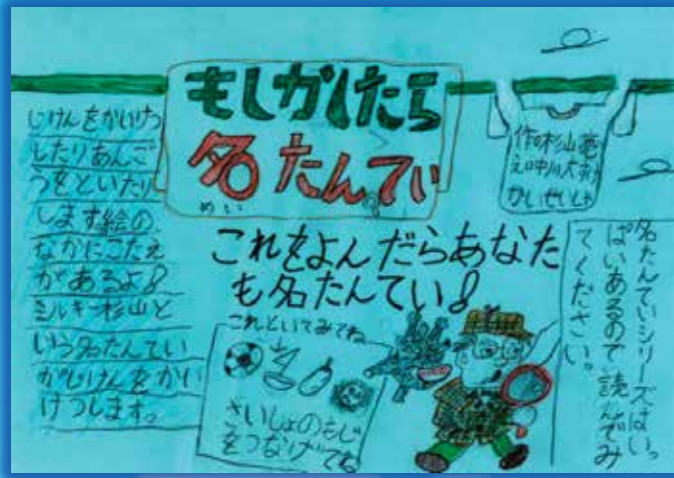 もしかしたら
名たんてい
めい
作の杉山亮
え中川大輔
かいせいしゃ
じけんをかいけつ
したりあんご
うをといたり
します絵の
なかにこたえ
があるよ!
ミルキー杉山と
いう名たんてい
がじけんをかい
けつします。
これをよんだらあなた
も名たんてい!
これといてみてね
さいしょのもじ
をつなげてね
名たんていシリーズはいっ
ぱいあるので読んでみ
てください。